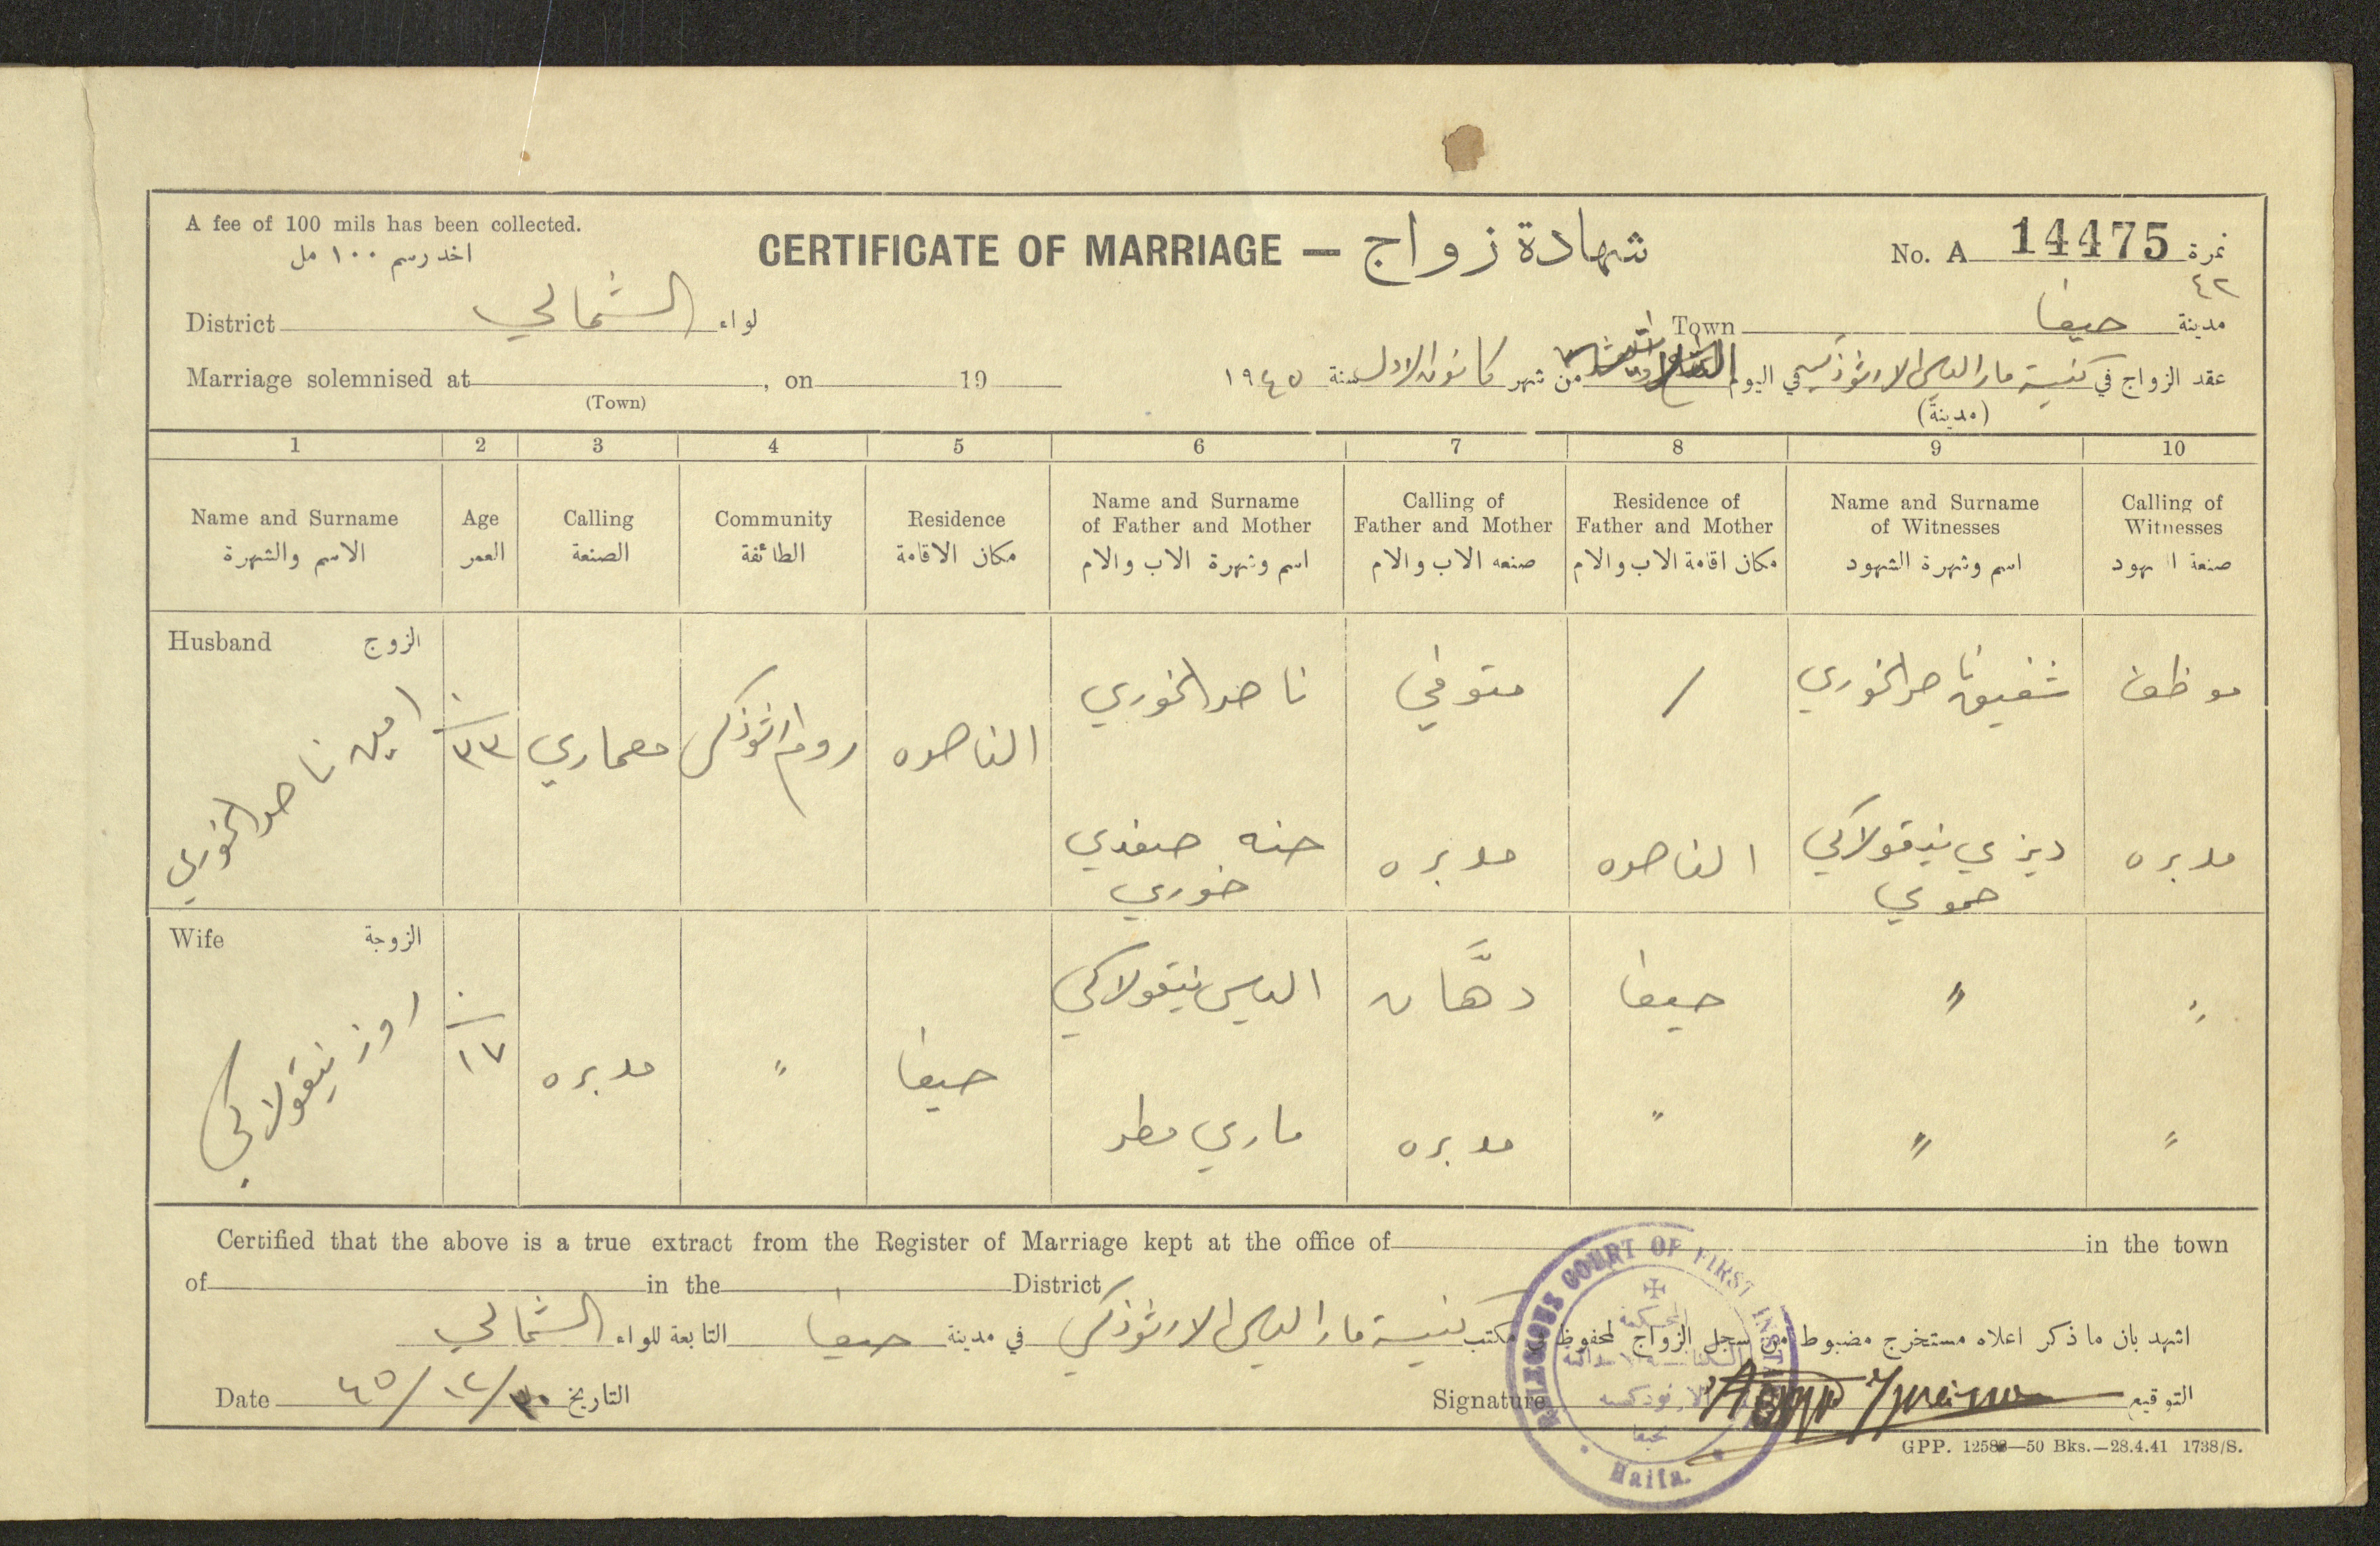 A fee of 100 mils has been collected.
اخذ رسم ١٠٠ مل
CERTIFICATE OF MARRIAGE — شهادة زواج
No. A 14475 نمرة
٤٢
District الشمالي لواء
Town حيفا مدينة
Marriage solemnised at , on 19
(Town)
عقد الزواج في كنيسة مار الياس الارثوذكسية في اليوم من شهر كانون الاول سنة ١٩٤٥
(مدينة)
1 2 3 4 5 6 7 8 9 10
Name and Surname الاسم والشهرة
Age العمر
Calling الصنعة
Community الطائفة
Residence مكان الاقامة
Name and Surname of Father and Mother اسم وشهرة الاب والام
Calling of Father and Mother صنعه الاب والام
Residence of Father and Mother مكان اقامة الاب والام
Name and Surname of Witnesses اسم وشهرة الشهود
Calling of Witnesses صنعة الشهود
Husband الزوج
امين ناصر الخوري
٣٣
معماري
روم ارثوذكس
الناصره
ناصر الخوري
متوفي
/
شفيق ناصر الخوري
موظف
حنه صفدي خوري
مدبره
الناصره
ديزي نيقولاكي حموي
مدبره
Wife الزوجة
روز نيقولاكي
١٧
مدبره
"
حيفا
الياس نيقولاكي
دهَّان
حيفا
"
"
ماري مطر
مدبره
"
"
"
Certified that the above is a true extract from the Register of Marriage kept at the office of in the town
of in the District
اشهد بان ما ذكر اعلاه مستخرج مضبوط من سجل الزواج المحفوظ في مكتب كنيسة مار الياس الارثوذكسي في مدينة حيفا التابعة للواء الشمالي
Date ٣٠/١٢/٤٥ التاريخ
Signature التوقيع
RELIGIOUS COURT OF FIRST INSTANCE
المحكمة
الكنائسية الابتدائية
الارثوذكسية
بحيفا
Haifa.
GPP. 12588—50 Bks.—28.4.41 1738/S.